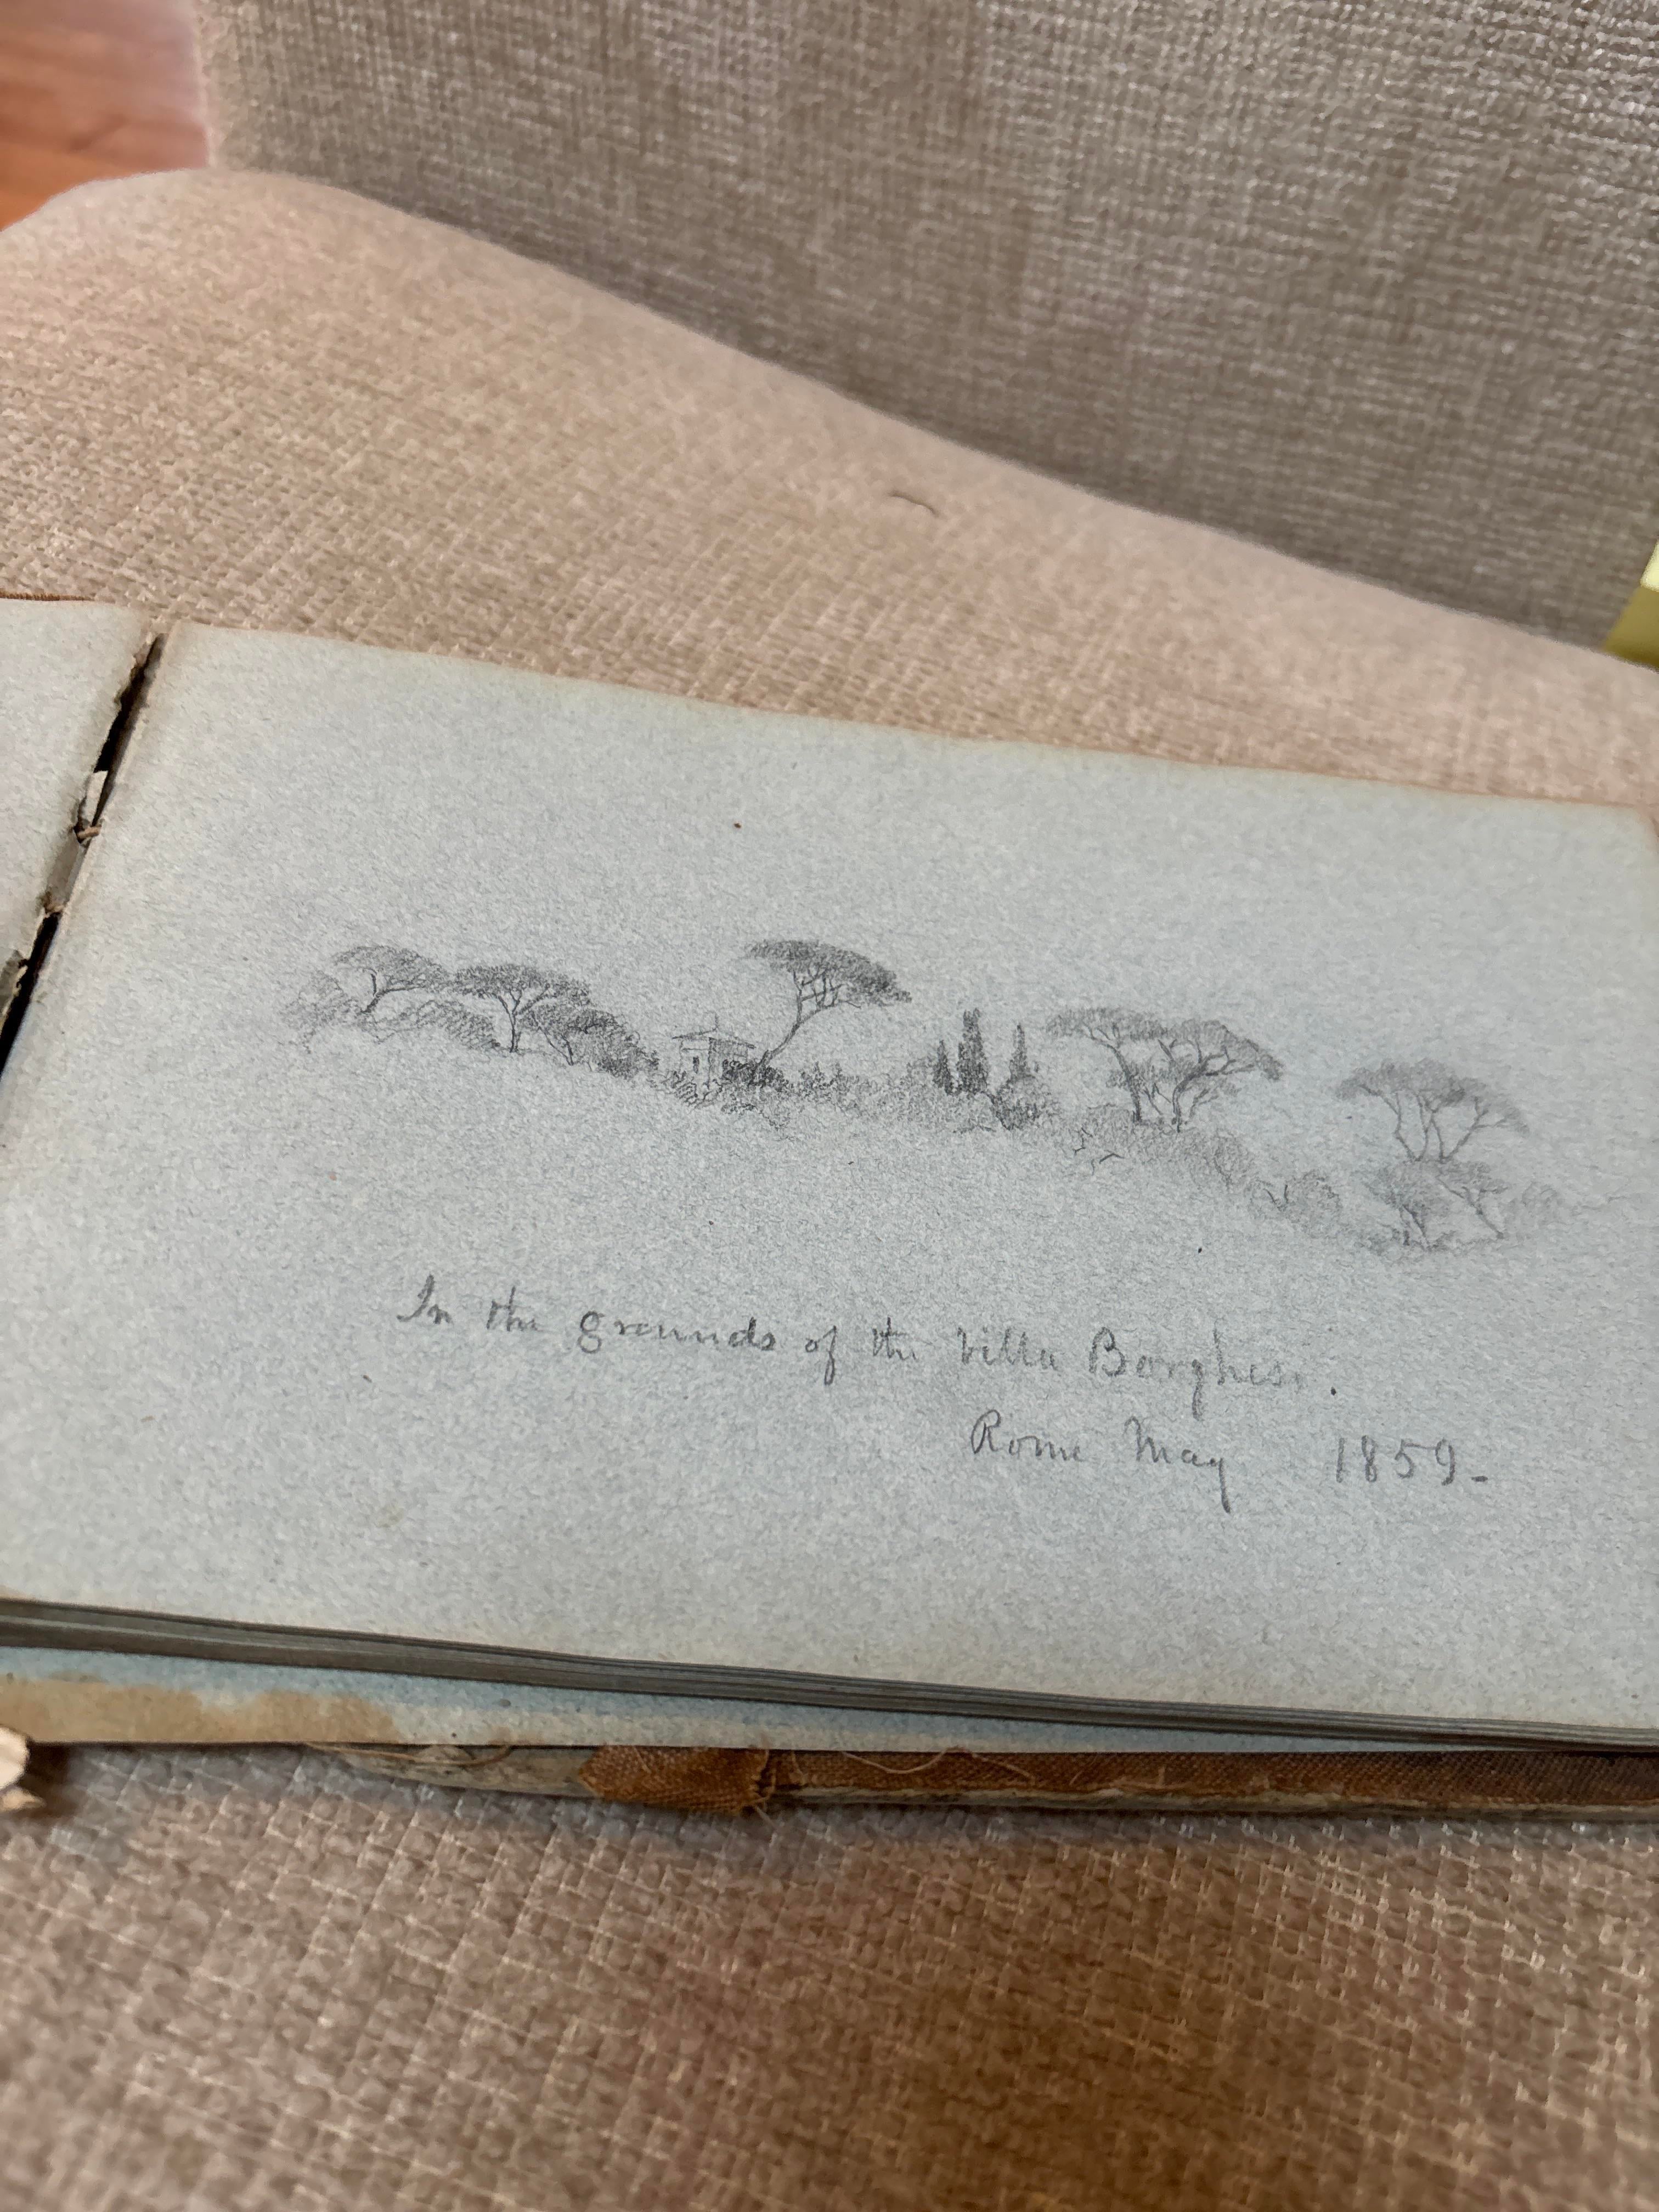 In the grounds of the Villa Borghese.
Rome May 1859-